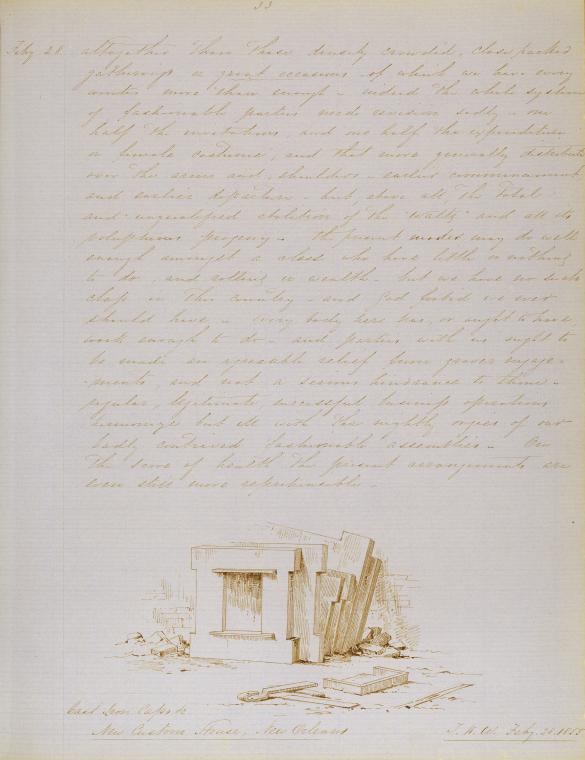 33
Feby 28. altogether than these densely crowded, close packed
gatherings on grand occasions of which we have every
winter more than enough - indeed the whole system
of fashionable parties needs revision sadly - one
half the invitations, and one half the expenditure
on female costume, and that more generally distributed
over the arms and shoulders - earlier commencement
and earlier departure - but, above all, the total
and unqualified abolition of the "waltz" and all its
polyphemus progeny - the present modes may do well
enough amongst a class who have little or nothing
to do, and rolling in wealth - but we have no such
class in this country - and God forbid we ever
should have - every body here has, or ought to have
work enough to do - and parties with us ought to
be made an agreeable relief from graver engage-
-ments, and not a serious hindrance to them -
regular, legitimate, successful business operations
harmonize but ill with the nightly orgies of our
badly contrived fashionable assemblies - On
the score of health the present arrangements are
even still more reprehensible -
Cast Iron Caps &c
New Custom House, New Orleans
Feby. 28. 1855